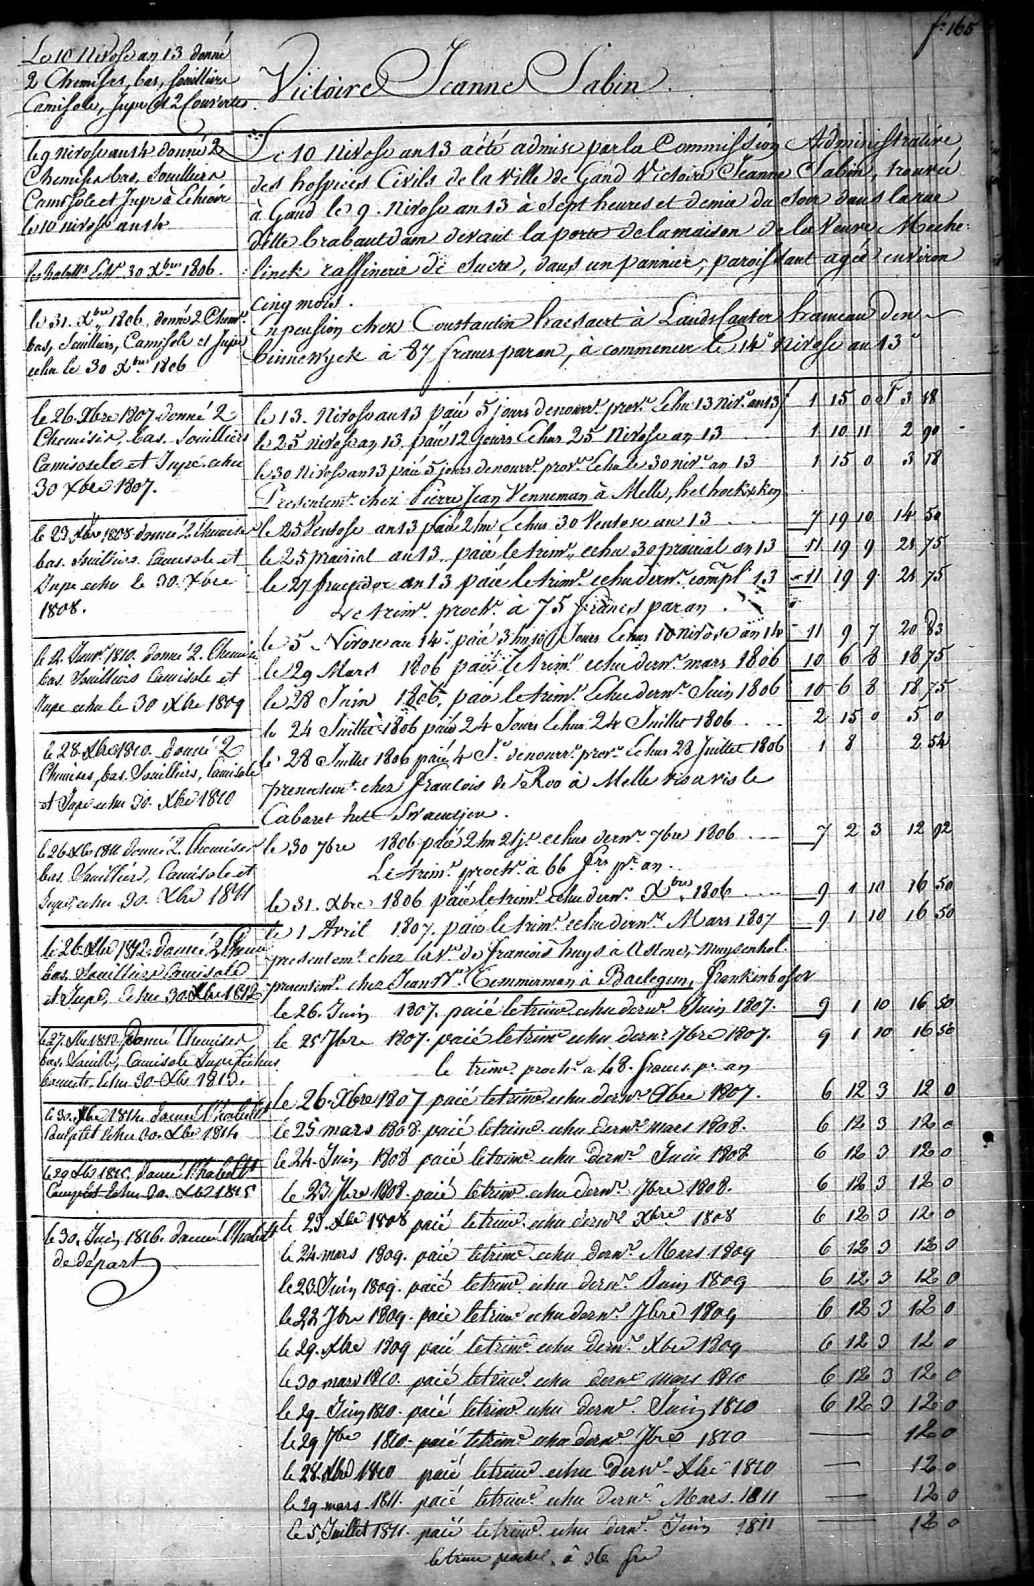 fo 165
Victoire Jeanne Sabin.
Le 10 Nivose an 13 donné
2 Chemises, bas, Souilliers
Camisole, Jupe et 2 Couvertes
le 9 nivose an 14 donné 2
Chemises bas, Souilliers
Camisole et Jupe à Echéoir
le 10 nivose an 14
les habillts Echs. 30 Xbre 1806.
le 31. Xbre 1806. donné 2 Chems.
bas, Souilliers, Camisole et Jupe
echu le 30 Xbre 1806
le 26 Xbre 1807 donné 2
Chemises, bas. Souilliers
Camisole et Jupe echu
30 Xbre 1807.
le 23 Xbre 1808 donné 2 Chemises
bas. Souilliers. Camisole et
Jupe echu le 30. Xbre
1808.
le 2. Janvr. 1810. donné 2. Chemises
bas Souilliers Camisole et
Jupe echu le 30 Xbre 1809
le 28. Xbre 1810. donné 2
Chemises, bas. Souilliers, Camisole
et Jupe echu 30. Xbre 1810
le 26 Xbre 1811 donné 2. Chemises
bas. Souilliers, Camisole et
Jupe echu 30. Xbre 1811
le 26. Xbre 1812. donné 2 Chemises
bas. Souilliers Camisole
et Jupe, Echu 30. Xbre 1812
le 27. Xbre 1813 donné Chemises
bas. Souill., Camisole Jupe fichus
Echu 30. Xbre 1813.
le 30. Xbre 1814 donné l'habillt
Complet echu 30. Xbre 1814
le 29 Xbre 1815. donné l'habillt
Complet Echu 30. Xbre 1815
le 30. Juin 1816. donné l'habillt
de départ
Le 10 Nivose an 13 a été admise par la Commission Administrative
des hospices Civils de la ville de Gand Victoire Jeanne Sabin, trouvée
à Gand le 9. Nivose an 13 à Sept heures et demie du Soir dans la rue
ditte brabantdam devant la porte de la maison de la Veuve Meche-
linck raffinerie de Sucre, dans un pannier, paroissant agée environ
Cinq mois.
En pension chez Constantin braesaert à Landscauter hameau den
binnewyck à 87 francs par an, à commencer le 14e Nivose an 13e
le 13. Nivose an 13 paié 5 jours de nourr. prov. Echu 13 niv. an 13 1 15 0 f 3 18
le 25 nivose an 13. paié 12 jours Echus 25 Nivose an 13 1 10 11 2 90
le 30 Nivose an 13 paié 5 jours de nourr. prov. Echu le 30 niv. an 13 1 15 0 3 18
Presentemt. chez Pierre Jean Venneman à Melle,
le 25 Ventose an 13 paié 2 m Echus 30 Ventose an 13 7 19 10 14 50
le 25 prairial an 13. paié le trimr. echu 30 prairial an 13 11 19 9 21 75
le 27 fructidor an 13 paié le trimr. echu dernr. compl. 13 11 19 9 21 75
Le trimr. prochr. à 75 francs par an.
le 5 Nivose an 14. paié 3 m 10 Jours Echus 10 nivose an 14 11 9 7 20 83
le 29 Mars 1806 paié le trimr. echu dernr. mars 1806 10 6 8 18 75
le 28 Juin 1806. paié le trimr. Echu dernr. Juin 1806 10 6 8 18 75
le 24 Juillet 1806 paié 24 Jours Echus 24 Juillet 1806 2 15 0 5 0
le 28 Juillet 1806 paié 4 Jrs. de nourr. prov. Echus 28 Juillet 1806 1 8 2 54
presentemt. chez francois de Roo à Melle vis a vis le
Cabaret het Swaentjen.
le 30 7bre 1806 paié 2 m 2 js. echus dernr. 7bre 1806 7 2 3 12 92
Le trimr. prochr. à 66 frs. pr. an.
le 31. Xbre 1806 paié le trimr. echu dernr. Xbre 1806 9 1 10 16 50
le 1 Avril 1807. paié le trimr. echu dernr. Mars 1807 9 1 10 16 50
presentemt. chez la Ve. de francois huys à Astene, muysenhol.
presentemt. chez Jean Bte. Temmerman à Baelegem, frankenbosch
le 26. Juin 1807. paié le trimr. echu dernr. Juin 1807. 9 1 10 16 50
le 25 7bre 1807. paié le trimr. echu dernr. 7bre 1807. 9 1 10 16 50
le trimr. prochr. a 48. francs pr. an
le 26. Xbre 1807 paié le trimr. echu dernr. Xbre 1807. 6 12 3 12 0
le 25 mars 1808. paié le trimr. echu dernr. mars 1808. 6 12 3 12 0
le 24. Juin 1808 paié le trimr. echu dernr. Juin 1808 6 12 3 12 0
le 23 7bre 1808. paié le trimr. echu dernr. 7bre 1808. 6 12 3 12 0
le 23. Xbre 1808 paié le trimr. echu dernr. Xbre 1808 6 12 3 12 0
le 24 mars 1809. paié le trimr. echu dernr. Mars 1809 6 12 3 12 0
le 23. Juin 1809. paié le trimr. echu dernr. Juin 1809 6 12 3 12 0
le 22 7bre 1809. paié le trimr. echu dernr. 7bre 1809 6 12 3 12 0
le 29. Xbre 1809 paié le trimr. echu dernr. Xbre 1809 6 12 3 12 0
le 30 mars 1810. paié le trimr. echu dernr. mars 1810 6 12 3 12 0
le 29. Juin 1810. paié le trimr. echu dernr. Juin 1810 6 12 3 12 0
le 29 7bre 1810. paié le trimr. echu dernr. 7bre 1810 12 0
le 28. Xbre 1810 paié le trimr. echu dernr. Xbre 1810 12 0
le 29 mars 1811. paié le trimr. echu dernr. Mars 1811 12 0
le 5. Juillet 1811. paié le trimr. echu dernr. Juin 1811 12 0
le trimr prochr. à 36 frs